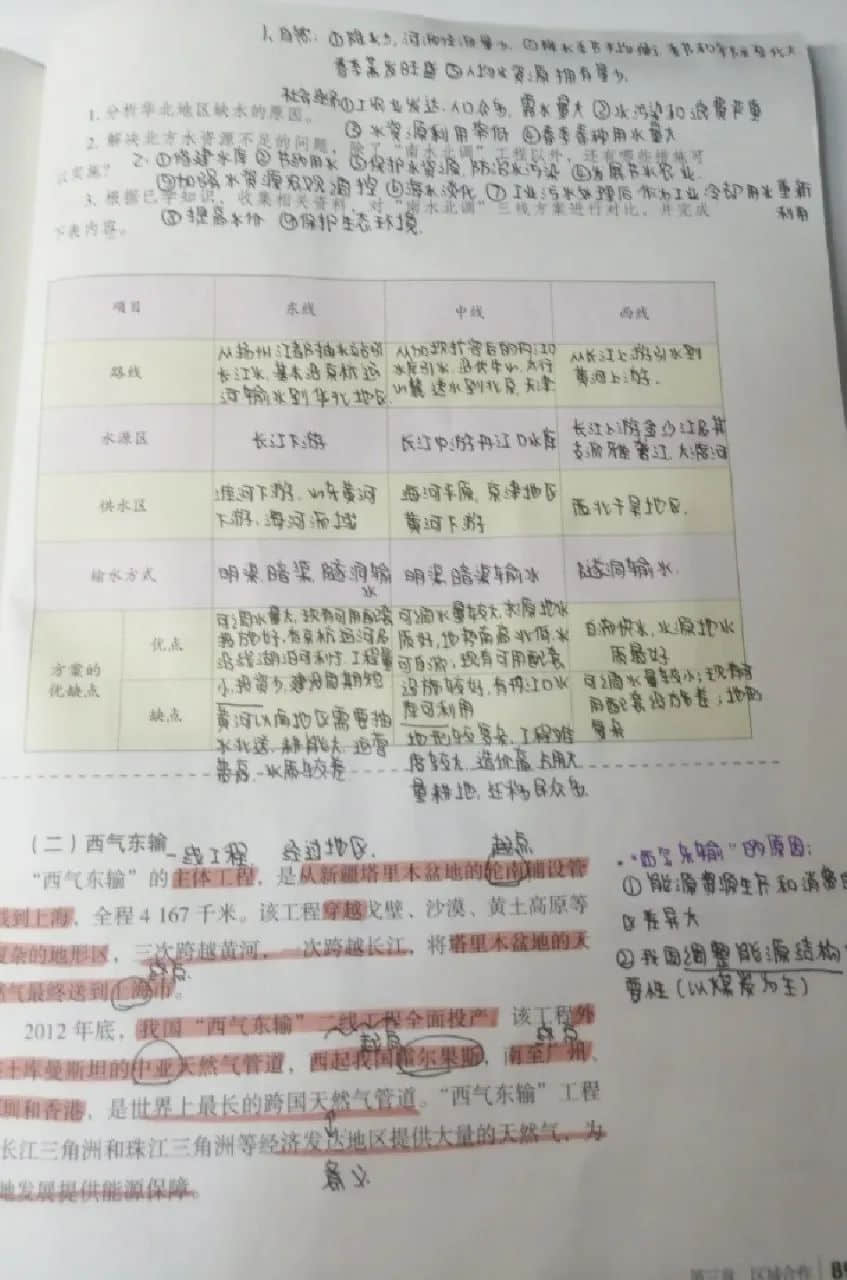 1、自然：①降水少，河流径流量少 ②降水季节
春季蒸发旺盛 ③人均水资源拥有量少
社会经济①工农业发达，人口众多，需水量大 ②水污染和浪费严重
1. 分析华北地区缺水的原因。
③水资源利用率低 ④春季春种用水量大
2. 解决北方水资源不足的问题，除了“南水北调”工程以外，还有哪些措施可
以实施？
2、①修建水库 ②节约用水 ③保护水资源，防治水污染 ④发展节水农业
⑤加强水资源 ⑥海水淡化 ⑦工业污水处理后作为工业冷却用水重新
利用
3. 根据已学知识，收集相关资料，对“南水北调”三线方案进行对比，并完成
⑧提高水价 ⑨保护生态环境
下表内容。
项目 东线 中线 西线
路线
从扬州江都抽水站引
长江水，基本沿京杭运
河输水到华北地区
从加坝扩容后的丹江口
水库引水，沿伏牛山、太行
山麓 送水到北京、天津
从长江上游引水到
黄河上游．
水源区
长江下游
长江中游丹江口水库
长江上游金沙江
支流雅砻江、大渡河
供水区
淮河下游、山东黄河
下游、海河流域
海河平原、京津地区
黄河下游
西北干旱地区．
输水方式
明渠、暗渠、隧洞输
水
明渠、暗渠输水
隧洞输水．
方案的
优缺点
优点
可调水量大，现有可用配套
设施好，有京杭运河及
沿线湖泊可利用，工程量
小，投资少，建设周期短
可调水量较大，水源地水
质好，地势南高北低，水
可自流，现有可用配套
设施较好，有丹江口水
库可利用
自流供水，水源地水
质最好
缺点
黄河以南地区需要抽
水北送，耗能大，运营
费高，水质较差
地形较复杂，工程难
度较大，造价高，占用大
量耕地，迁移民众多
可调水量较小；现有可
用配套设施差；地形
复杂
（二）西气东输
一线工程 经过地区． 起点
“西气东输”的主体工程，是从新疆塔里木盆地的轮南铺设管
线到上海，全程 4 167 千米。该工程穿越戈壁、沙漠、黄土高原等
复杂的地形区，三次跨越黄河，一次跨越长江，将塔里木盆地的天
终点
然气最终送到上海市。
2012 年底，我国“西气东输”二线工程全面投产。该工程外
起点 终点
土库曼斯坦的中亚天然气管道，西起我国霍尔果斯，南至广州、
深圳和香港，是世界上最长的跨国天然气管道。“西气东输”工程
长江三角洲和珠江三角洲等经济发达地区提供大量的天然气，为
意义
地发展提供能源保障。
• “西气东输”的原因：
①能源资源生产和消费
区差异大
②我国调整能源结构
要性（以煤炭为主）
第三章 区域合作